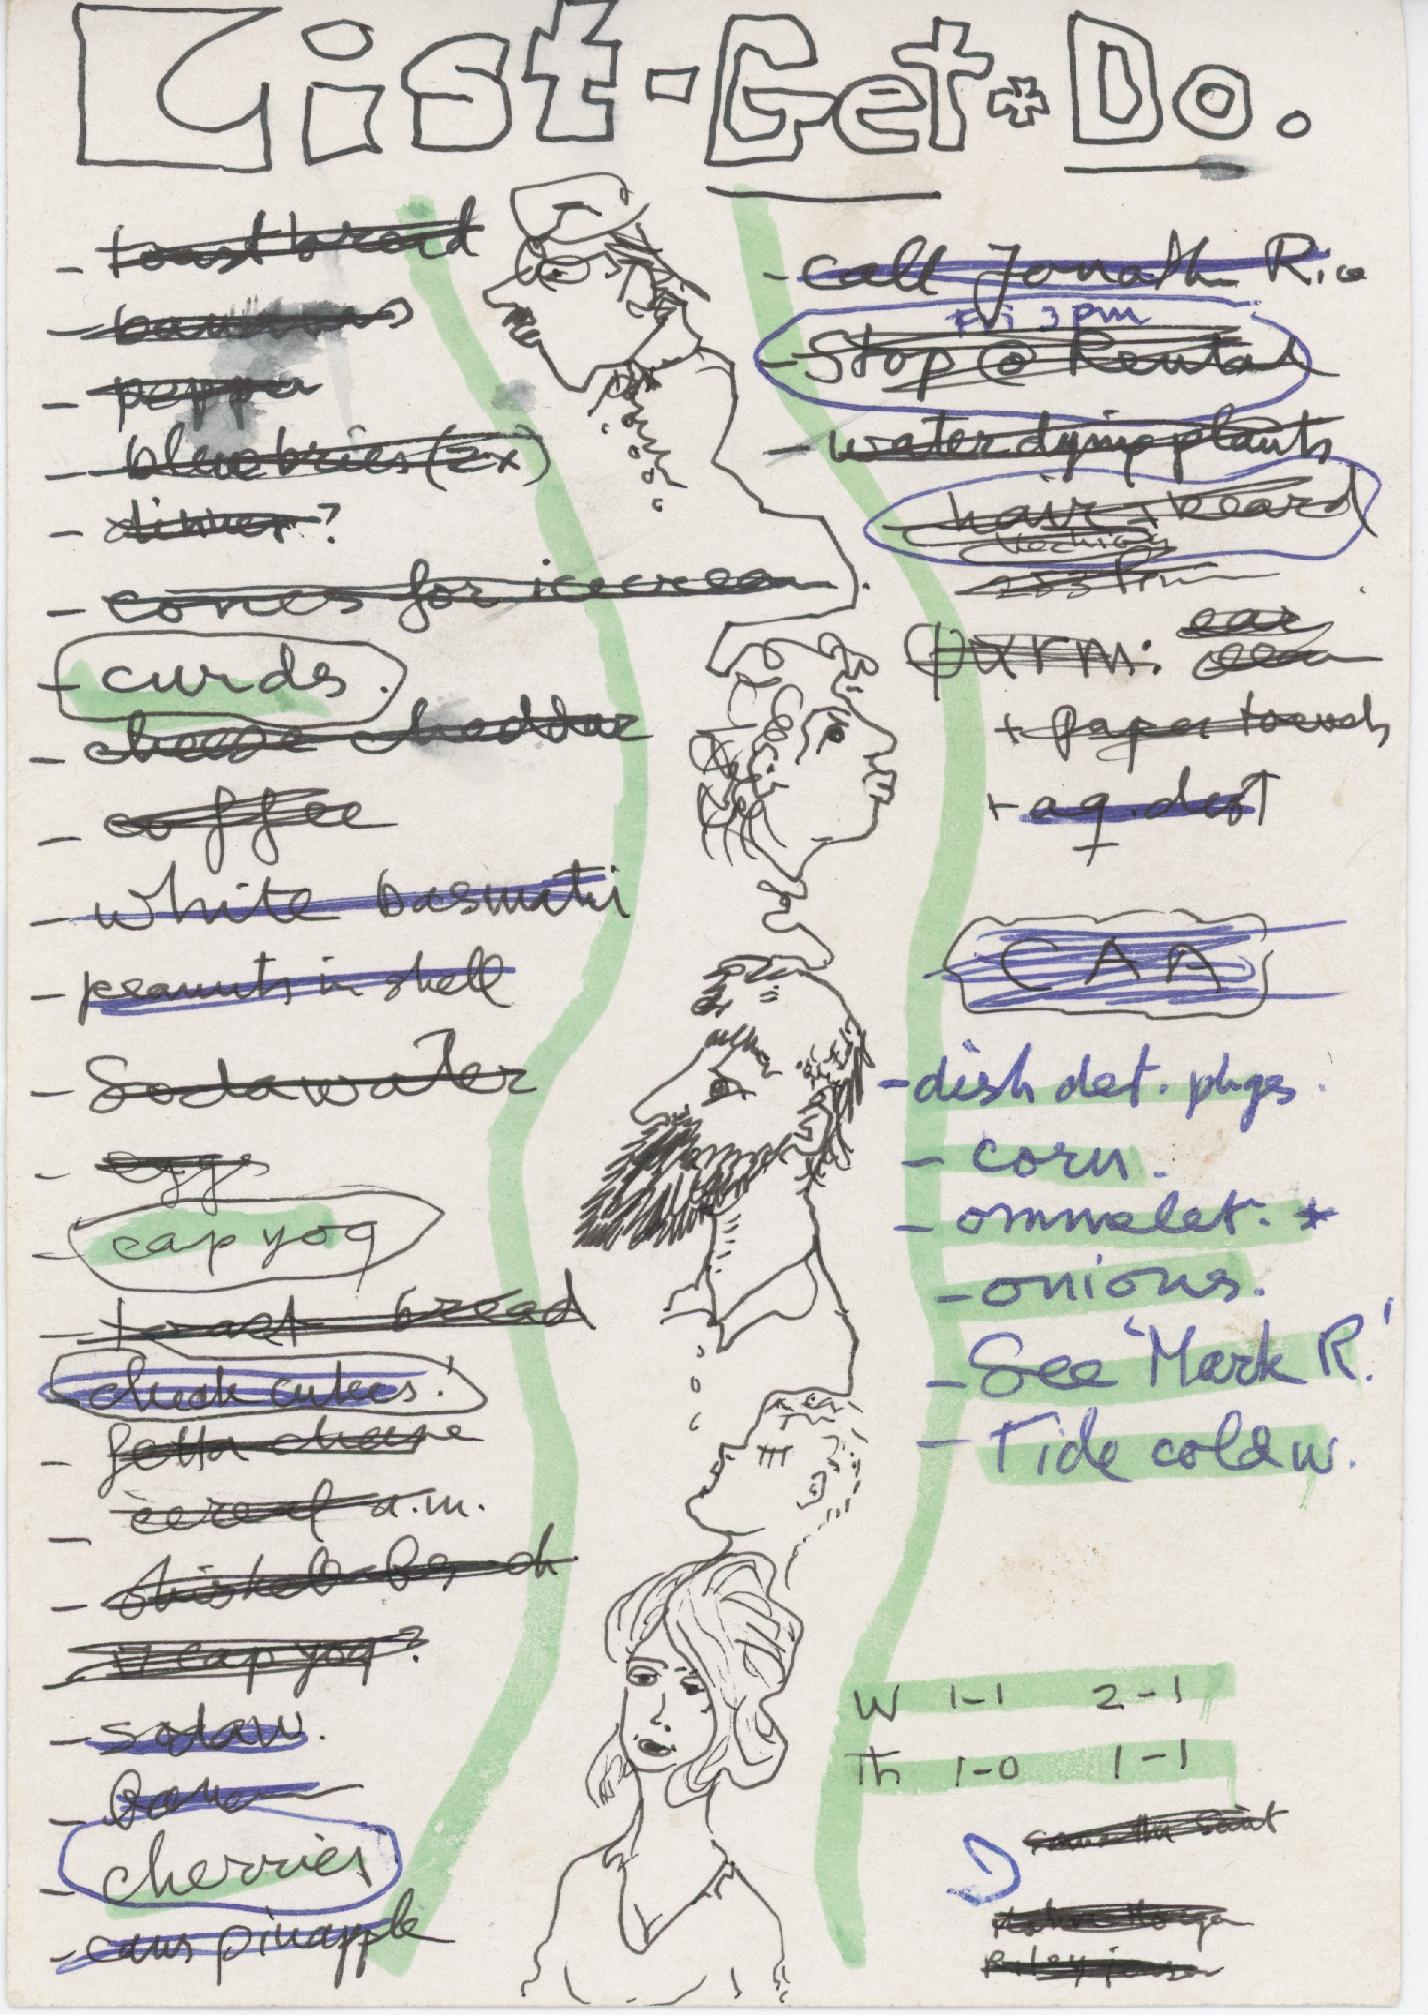 List - Get * Do.
- toast bread
- bananas
- pepper
- bleuebries (2x)
- dinner?
- cones for icecream
- curds.
- cheese cheddar
- coffee
- white basmati
- peanuts in shell
- Sodawater
- eggs
- cap yog
- toast bread
- check cukes!
- fetta cheese
- cereal a.m.
-
- cap yog?
- sodaw.
-
- cherries
- cans pinapple
- call Jonath Rice
Fri 3pm
- Stop @ Rental
- water dying plants
hair + beard
: ear
+ paper towels
+ aq. dest
CAA
- dish det. pkgs.
- corn.
- ommelet. *
- onions.
- See 'Mark R.'
- Tide cold w.
W 1-1 2-1
Th 1-0 1-1